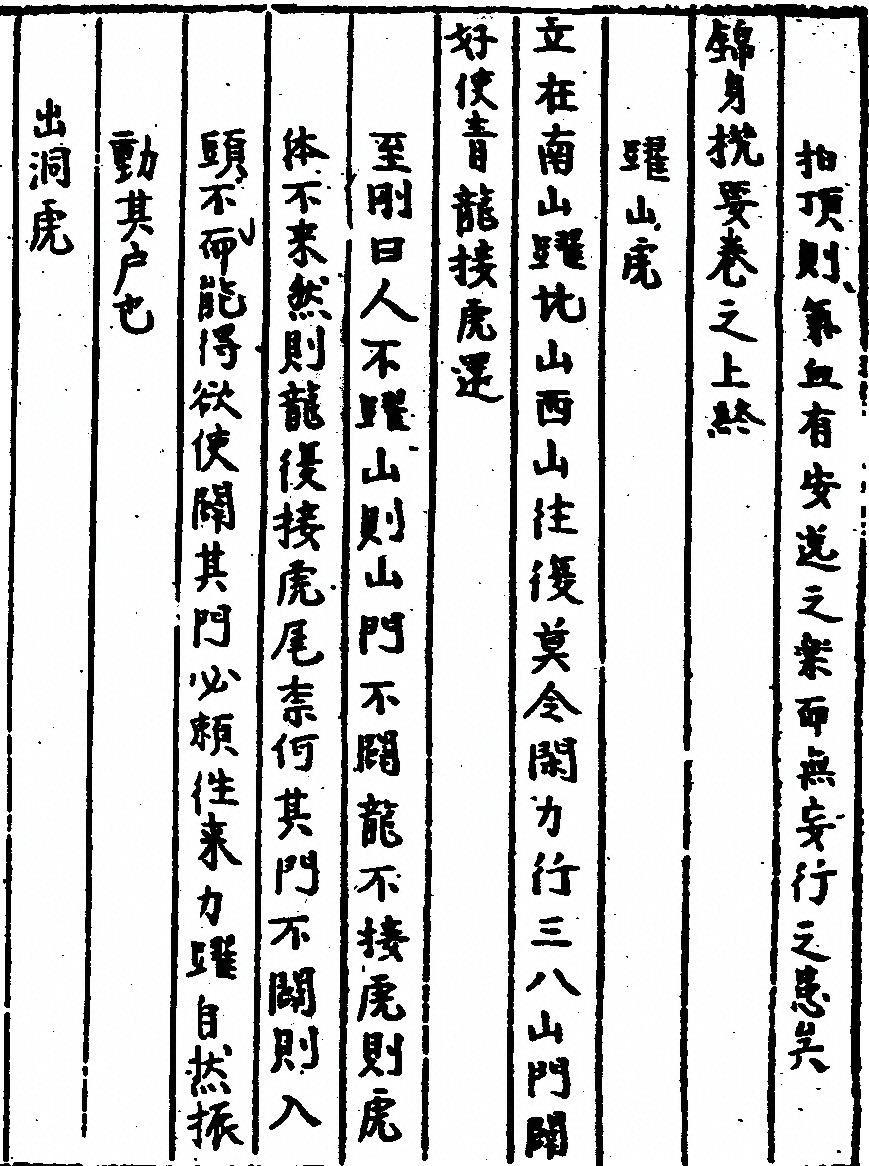 拍頂則氣血有安逸之樂而無妄行之患矣
錦身捝要卷之上終
躍山虎
立在南山躍北山西山往復莫令閑力行三八山門闢
好使青龍接虎還
至剛曰人不躍山則山門不闢龍不接虎則虎
体不来然則龍復接虎尾柰何其門不闢則入
頭不而能得欲使闢其門必賴往来力躍自然振
動其户也
出洞虎